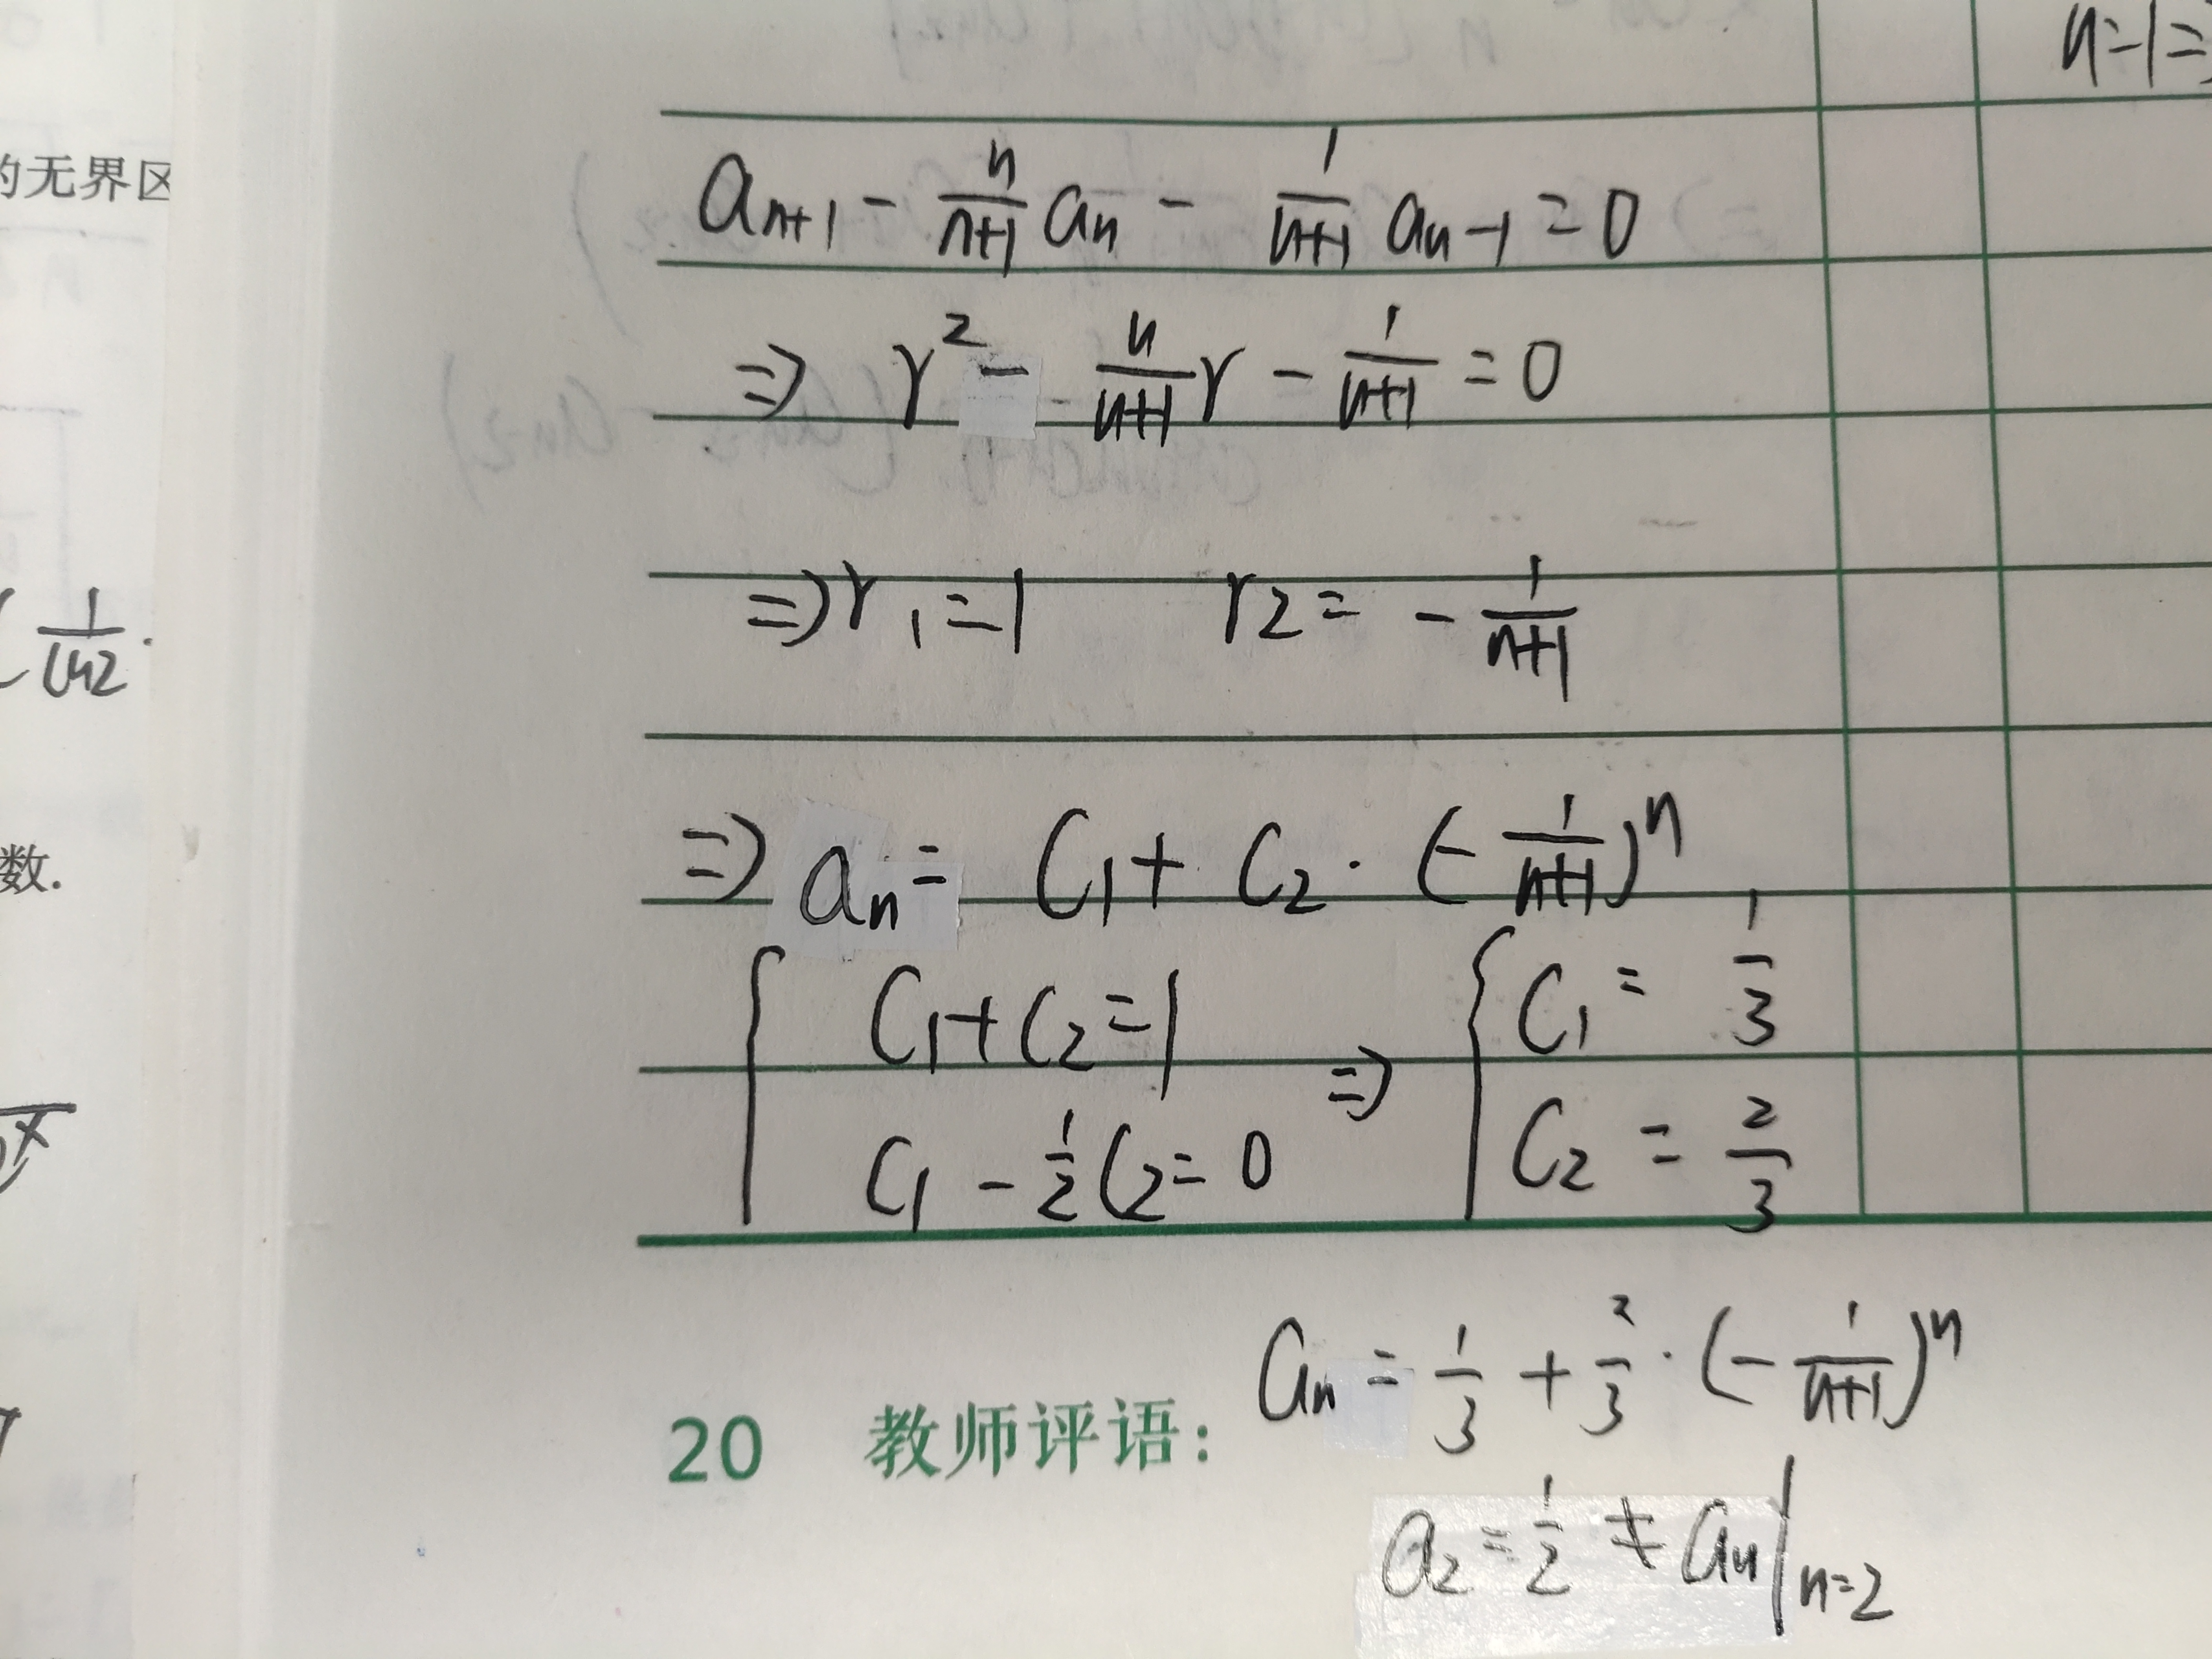 n=1⇒
的无界区
a_{n+1} - \frac{n}{n+1} a_n - \frac{1}{n+1} a_{n-1} = 0
⇒ r^2 - \frac{n}{n+1} r - \frac{1}{n+1} = 0
⇒ r_1 = 1  r_2 = - \frac{1}{n+1}
\frac{1}{ln2} ·
⇒ a_n = C_1 + C_2 · (- \frac{1}{n+1})^n
数.
{ C_1 + C_2 = 1
C_1 - \frac{1}{2} C_2 = 0
⇒ { C_1 = \frac{1}{3}
C_2 = \frac{2}{3}
a_n = \frac{1}{3} + \frac{2}{3} · (- \frac{1}{n+1})^n
20 教师评语:
a_2 = \frac{1}{2} ≠ a_n |_{n=2}